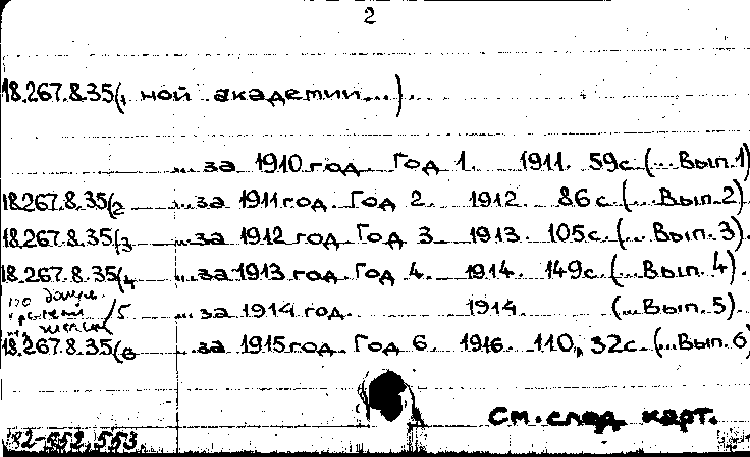 2
18.267.8.35(1 ной академии...).
... за 1910 год. Год 1. 1911. 59с. (...Вып.1)
18.267.8.35(2 ...за 1911 год. Год 2. 1912. 86с. (...Вып.2)
18.267.8.35(3 ...за 1912 год. Год 3. 1913. 105с. (...Вып.3).
18.267.8.35(4 ...за 1913 год. Год 4. 1914. 149с. (...Вып.4).
/5 ...за 1914 год. 1914 (...Вып.5).
18.267.8.35(6 ...за 1915 год. Год 6. 1916. 110, 32с. (...Вып.6
См. след. карт.
82-552,553.